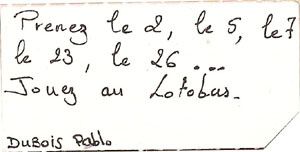 Prenez le 2, le 5, le 7
le 23, le 26 ...
Jouez au Lotobus.
DUBOIS Pablo